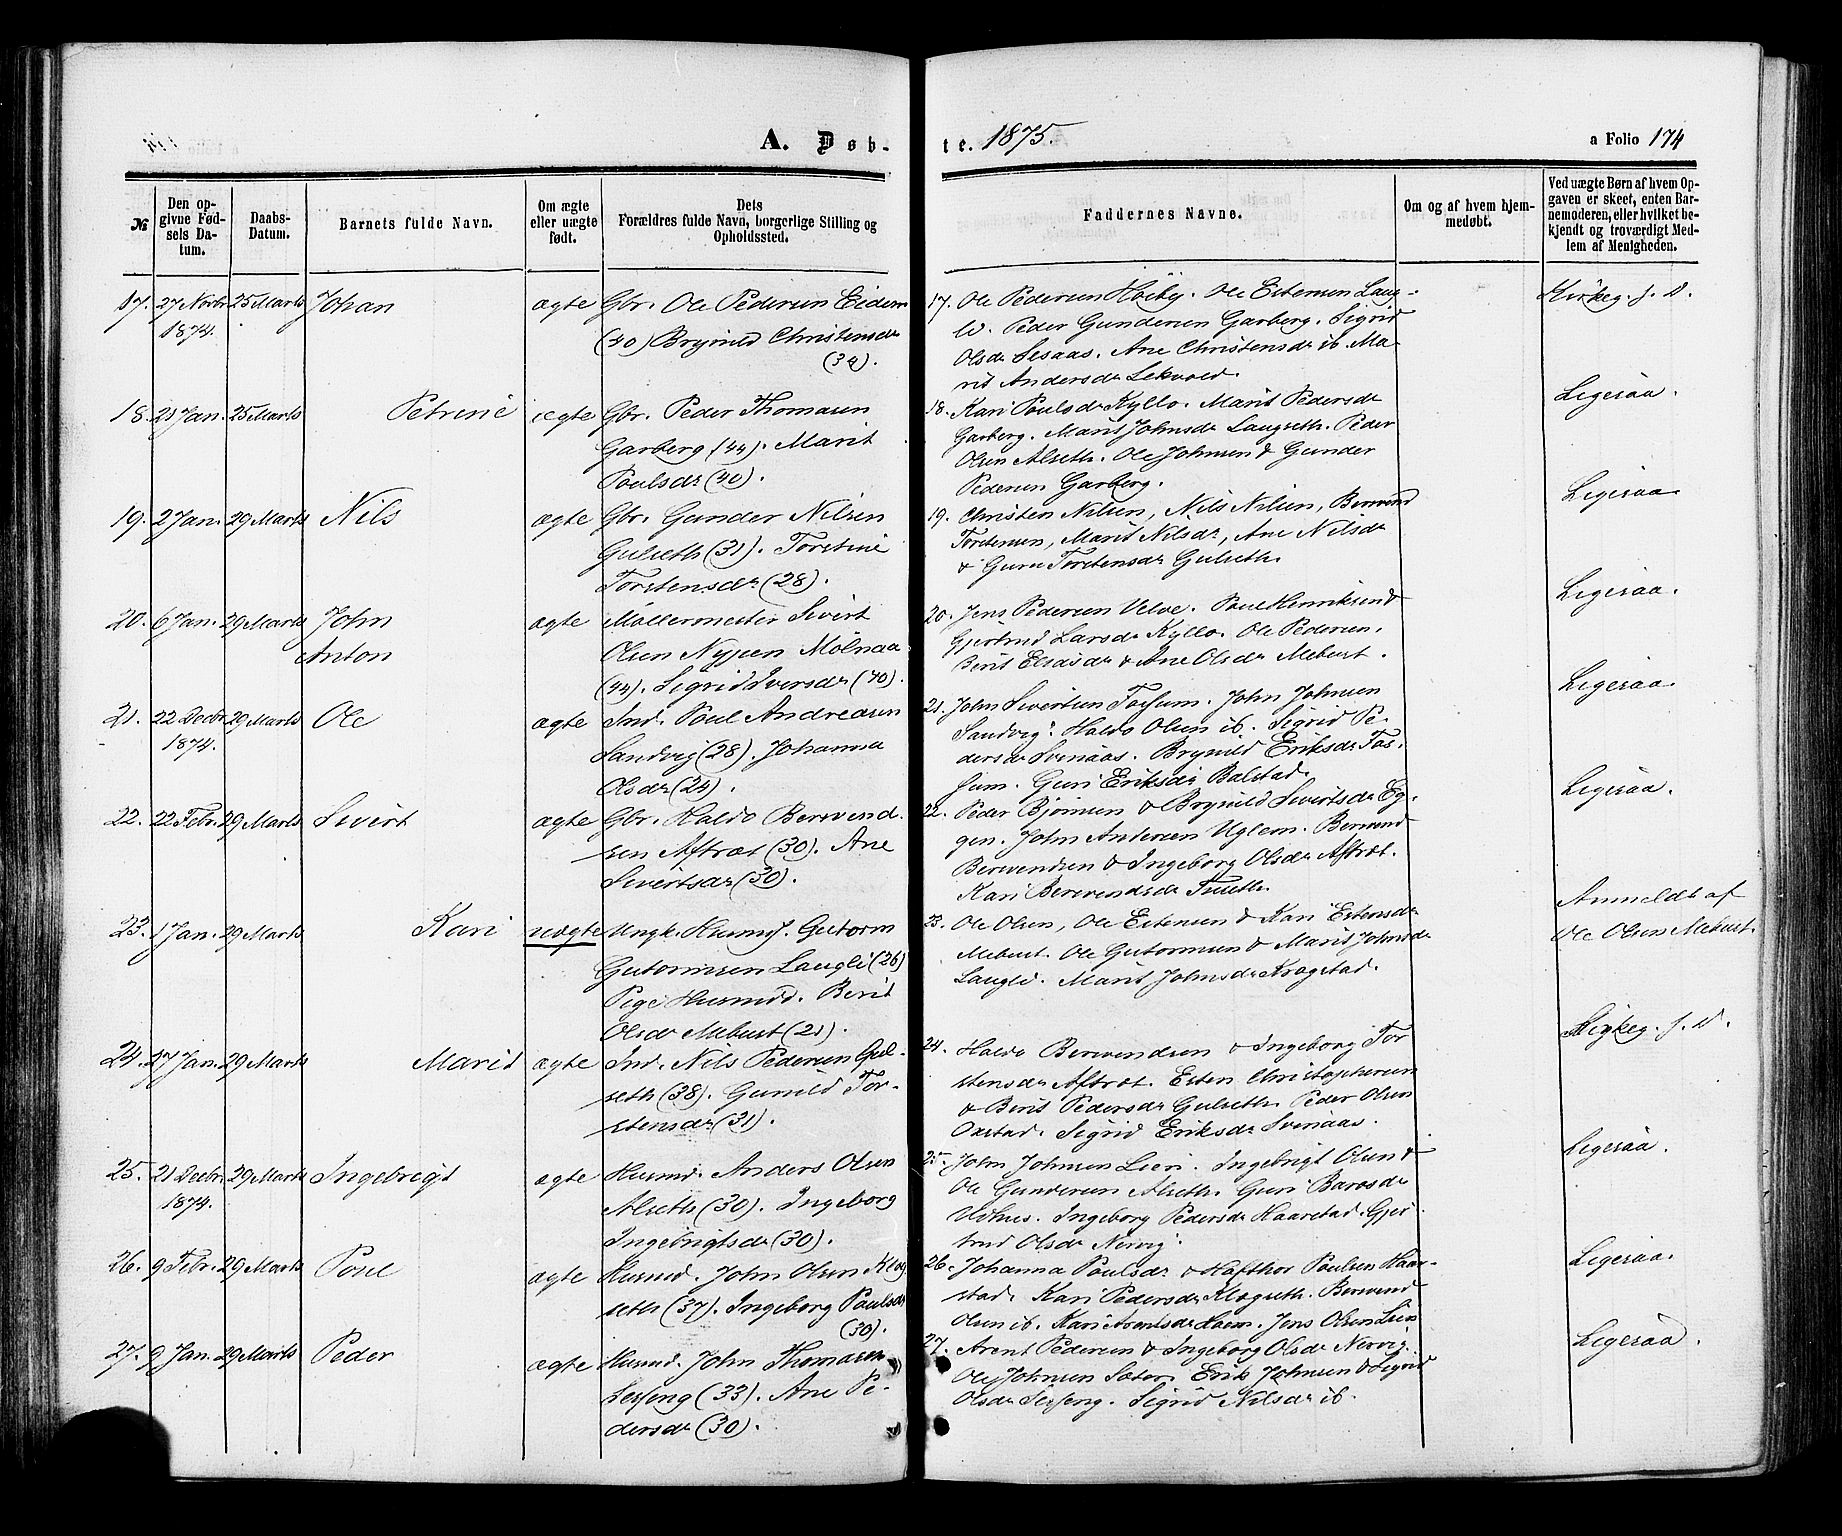 A. Døb-
te. 1875.
a Folio 174
№
Den opgivne Fødsels Datum.
Daabs-Datum.
Barnets fulde Navn.
Om ægte eller uægte født.
Dets Forældres fulde Navn, borgerlige Stilling og Opholdssted.
Faddernes Navne.
Om og af hvem hjemmedøbt.
Ved uægte Børn af hvem Opgaven er skeet, enten Barnemoderen, eller hvilket bekjendt og troværdigt Medlem af Menigheden.
17. 27 Novbr 25 Marts Johan ægte Gbr. Ole Pedersen Eidem
1874. (40) Brynild Christensdr
(34).
18. 21 Jan. 25 Marts Petrine ægte Gbr. Peder Thomasen
Garberg (44). Marit
Poulsdr (40).
19. 2 Jan. 29 Marts Nils ægte Gbr. Gunder Nilsen
Gulseth (31). Torstine
Torstensdr (28).
20. 6 Jan. 29 Marts John ægte Møllermester Sivert
Anton Olsen Nypen Mölnaa
(44). Sigrid Iversdr (40).
21. 22 Decbr 29 Marts Ole ægte Ind. Poul Andreasen
1874. Sandvig (28). Johanna
Olsdr (24).
22. 22 Febr. 29 Marts Sivert ægte Gbr. Haldo Berevend-
sen Aftret (30). Ane
Sivertsdr (30).
23. 1 Jan. 29 Marts Kari uægte Ungk. Husmd. Gutorm
Gutormsen Laugli (26)
Pige Husmdd. Berit
Olsdr Mebust (21).
24. 17 Jan. 29 Marts Marit ægte Ind. Nils Pedersen Gul-
seth (38). Gunild Tor-
stensdr (31).
25. 21 Decbr. 29 Marts Ingebrigt ægte Husmd. Anders Olsen
1874. Alseth (30). Ingeborg
Ingebrigtsdr (30).
26. 9 Febr. 29 Marts Poul ægte Husmd. John Olsen Klög
seth (37). Ingeborg Poulsdr
(30).
27. 9 Jan. 29 Marts Peder ægte Husmd. John Thomasen
Sesseng (33). Ane Pe-
dersdr (30).
17. Ole Pedersen Höiby. Ole Estensen Laug-
li. Peder Gundersen Garberg. Sigrid
Olsdr Sesaas. Ane Christensdr ib. Ma-
rit Andersdr Lekvold.
Kirkeg. f. D.
18. Kari Poulsdr Kyllo. Marit Pedersdr
Garberg. Marit Johnsdr Laugseth. Peder
Olsen Alseth. Ole Johnsen & Gunder
Pedersen Garberg.
Ligesaa.
19. Christen Nilsen, Nils Nilsen, Berevend
Torstensen, Marit Nilsdr, Ane Nilsdr
& Guru Torstensdr Gulseth.
Ligesaa.
20. Jens Pedersen Velve. Poul Henriksen &
Gjertrud Larsdr Kyllo. Ole Pedersen,
Berit Elsasdr & Ane Olsdr Mebust.
Ligesaa.
21. John Sivertsen Fossum. John Johnsen
Sandvig. Haldo Olsen ib. Sigrid Pe-
dersdr Svinaas. Brynild Eriksdr Fos-
sum. Guri Eriksdr Balstad.
Ligesaa.
22. Peder Bjørnsen & Brynild Sivertsdr Eg-
gen. John Antersen Uglem. Berevend
Berevendsen & Ingeborg Olsdr Aftret.
Kari Berevendsdr Tuseth.
Ligesaa.
23. Ole Olsen, Ole Estensen & Kari Estensdr
Mebust. Ole Gutormsen & Marit Johnsdr
Laugli. Marit Johnsdr Kragstad.
Anmeldt af
Ole Olsen Mebust.
24. Haldo Berevendsen & Ingeborg Tor
stensdr Aftret. Esten Christophersen
& Berit Pedersdr Gulseth. Peder Olsen
Oxstad. Sigrid Eriksdr Svinaas.
Kirkeg. f. D.
25. John Johnsen Lien. Ingebrigt Olsen &
Ole Gundersen Alseth. Guri Barosdr
Udhus. Ingeborg Pedersdr Haarstad. Gjer
trud Olsdr Nervig.
Ligesaa.
26. Johanna Poulsdr & Hafthor Poulsen Haar-
stad. Kari Pedersdr Klögseth. Berevend
Olsen ib. Kari Arntsdr Moen. Jens Olsen Lien
Ligesaa.
27. Arent Pedersen & Ingeborg Olsdr Nervig.
Ole Johnsen Sæter. Erik Johnsen & Sigrid
Olsdr Sesseng. Sigrid Nilsdr ib.
Ligesaa.